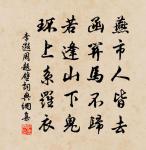 燕市人皆去
函關馬不歸
若逢山下鬼
環上系羅衣
李遐周題壁詞典網集